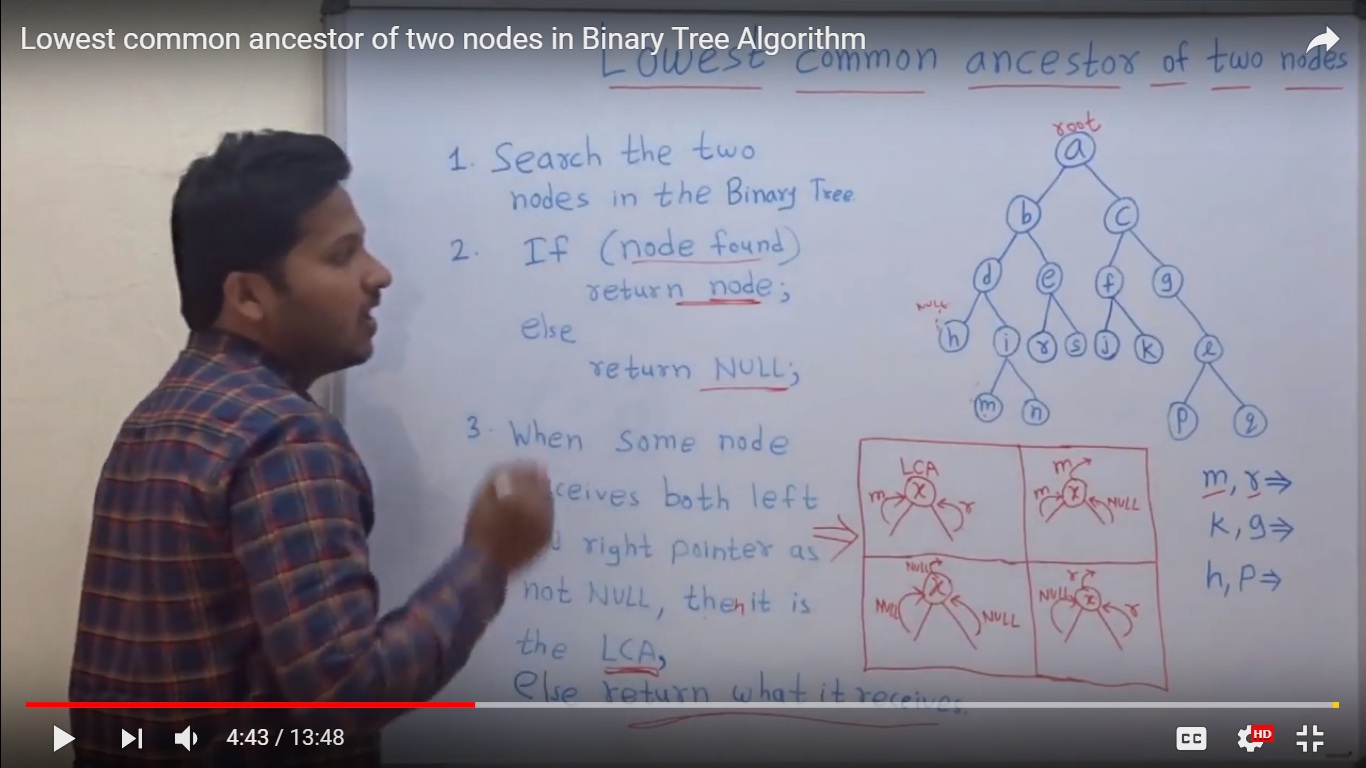 Lowest common ancestor of two nodes in Binary Tree Algorithm
Lowest common ancestor of two nodes
1. Search the two
nodes in the Binary Tree
2. If (node found)
return node;
else
return NULL;
3. When some node
ceives both left
right pointer as
not NULL, then it is
the LCA,
Else return what it receives.
root
a
b c
d e f g
NULL
h i r s j k l
m n p q
LCA
m x r
m
m x NULL
NULL
NULL x NULL
r
NULL x r
m, r ⇒
k, g ⇒
h, p ⇒
4:43 / 13:48
CC
HD